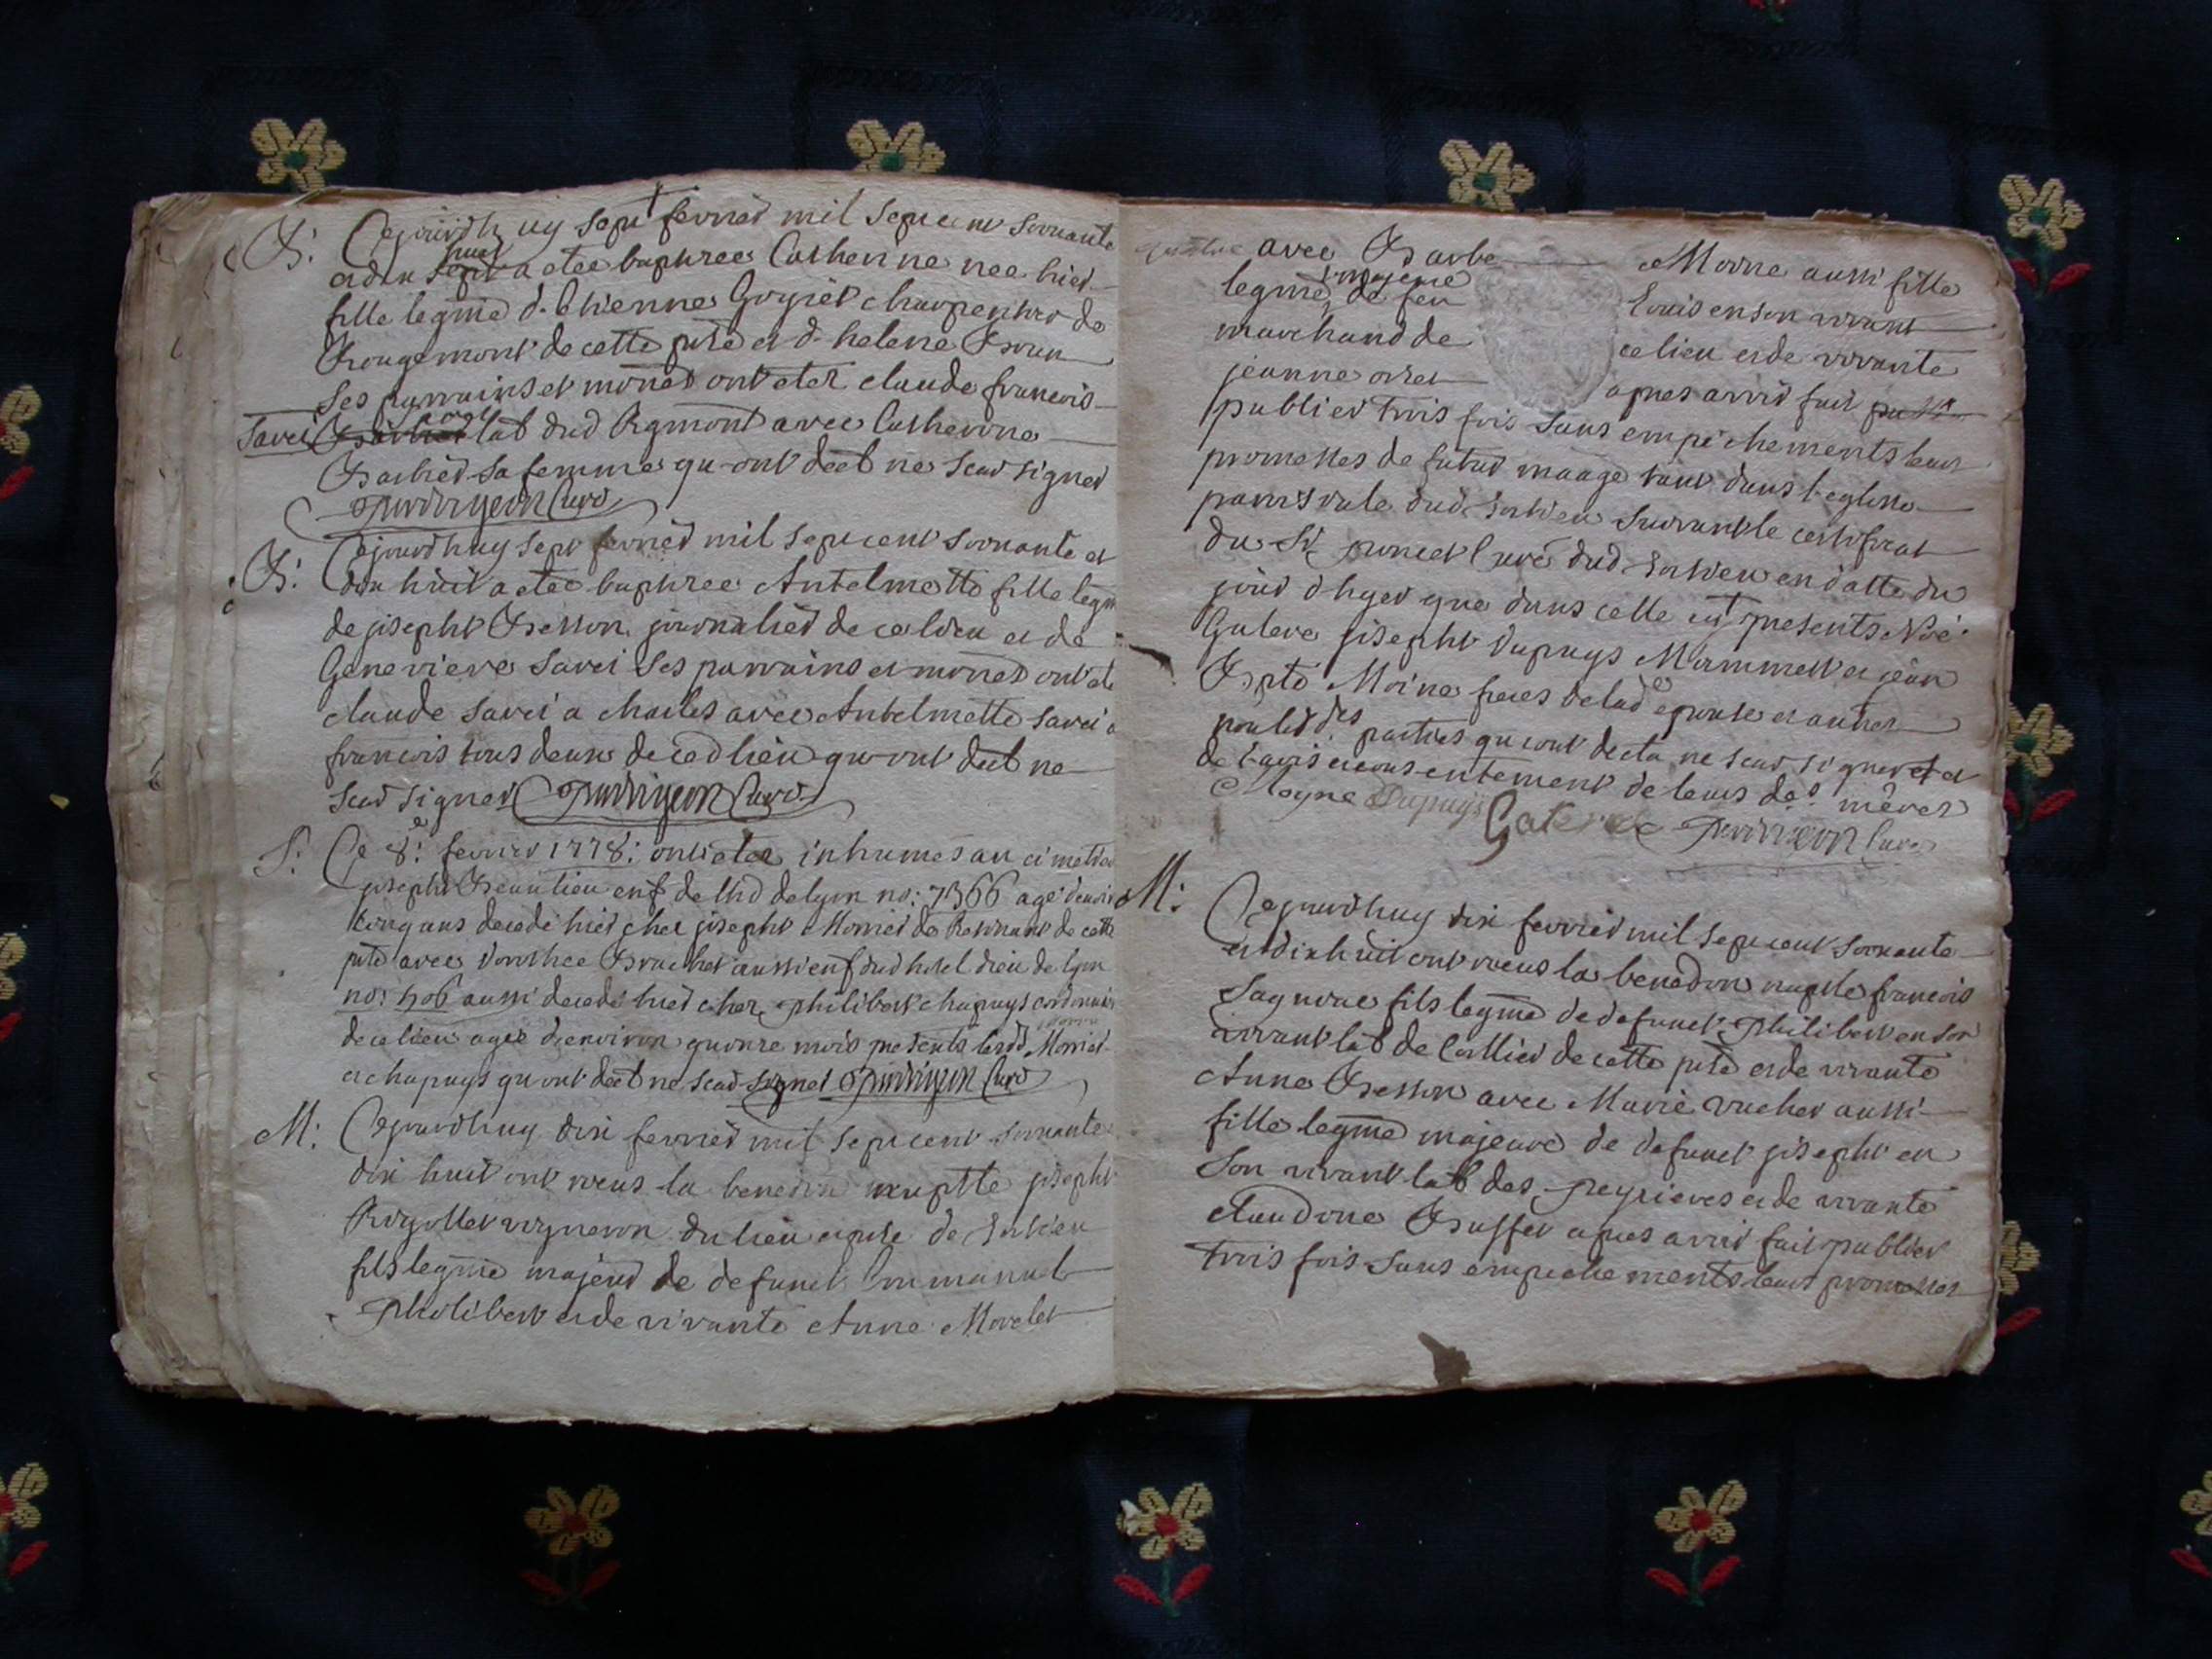 B: Cejourdhuy sept fevrier mil sept cent soixante
et dix huit a etée baptisee Catherine nee hier
fille legme d'Etienne Goyiet charpentier de
Rougemont de cette psse et d'helene
ses parrains et mared ont eter claude francois
Savei lab dud Rgmont avec Catherine
Barbier sa femme qu-ont declt ne scav signer
Curé
B: Cejourdhuy sept fevrier mil sept cent soixante et
dix huit a etée baptisee Antelmette fille legm
de joseph Besson journalier de ce lieu et de
Genevieve Savei ses parrains et mared ont ete
claude Savei a charles avec Antelmette Savei a
francois tous deux de ced lieu qu-ont declt ne
scav signer Curé
S: Ce 8e: fevrier 1778: ont etee inhumes au cimetier
joseph Beaulieu enf de lhd de lyon no: 7366 agé
cinq ans decedé hier chez joseph Monier de de cette
psse avec dorothee Brachet aussi enf dud hotel dieu de lyon
no: 506 aussi decedé hier chez philibert chapuys cordonnier
de ce lieu agée denviron quinze mois presents lesd Monier
et chapuys qu ont declt ne scav signer Curé
M: Cejourdhuy dix fevrier mil sept cent soixante
dix huit ont recus la benedon nuptle joseph
Rigollet vigneron du lieu et psse de
fils legme majeur de defunct Emmanuel
Philibert et de vivante Anne Morelet
avec Barbe Moine aussi fille
legme majeure de feu Louis en son vivant
marchand de ce lieu et de vivante
jeanne apres avoir fait
publier trois fois sans empechements leur
promesses de futur maage tant dans l'eglise
paroissiale dud suivant le certificat
du Sr poncet Curé dud en datte du
jour d'hyer que dans celle cy presents Noé
Galere joseph Dupuys Mammert et jean
Bpte Moine freres de lad epouse et autres
des parties qui ont declt ne scav signer et
de l'avis et consentement de leurs des meres
Moyne Dupuys Galere Curé
M: Cejourdhuy dix fevrier mil sept cent soixante
et dix huit ont recus la benedon nuptle francois
fils legme de defunct Philibert en son
vivant lab de Collieu de cette psse et de vivante
Anne Besson avec Marie vuchet aussi
fille legme majeure de defunct joseph en
son vivant lab des peyrieres et de vivante
claudine Buffet apres avoir fait publier
trois fois sans empechements leurs promesses